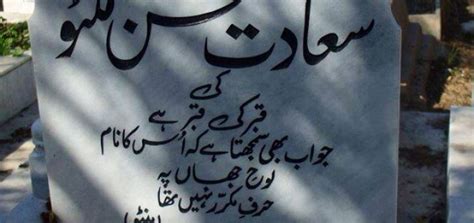 سعادت حسن منٹو
کی
قبر کی قبر ہے
جو اب بھی سمجھتا ہے کہ اُس کا نام
لوح جہاں پہ
حرفِ مکرّر نہیں تھا
منٹو